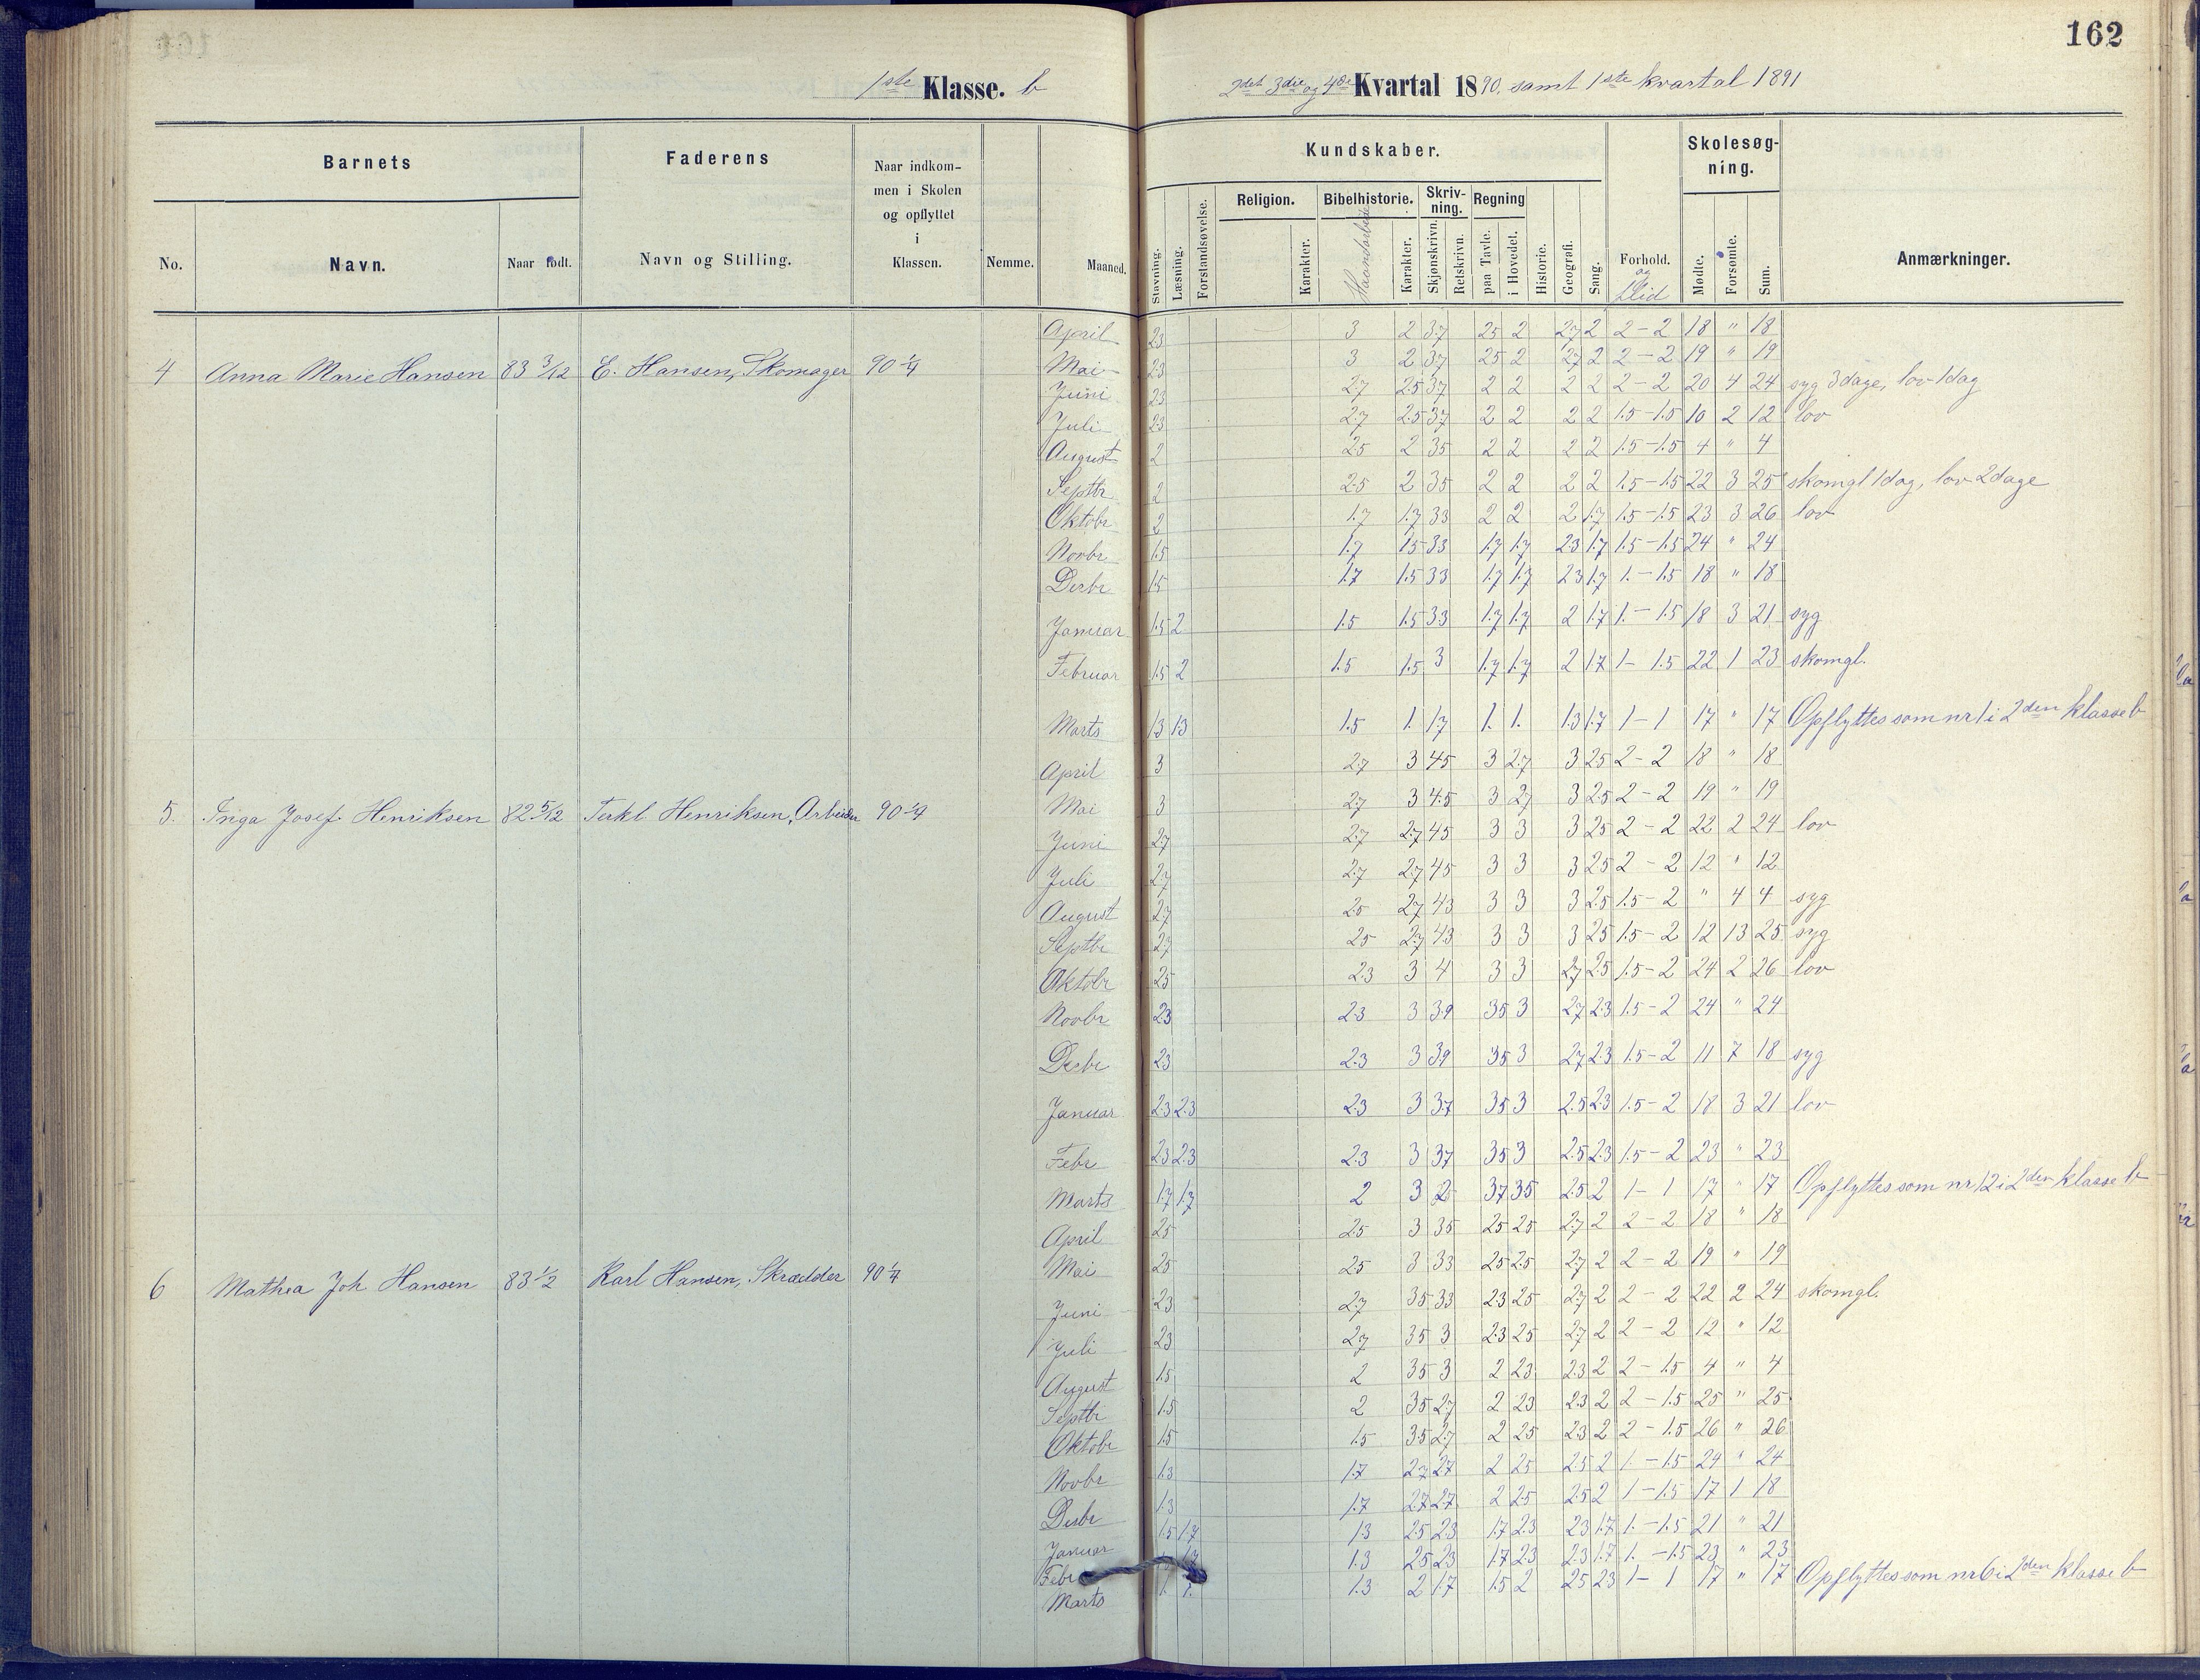 162
1ste Klasse. b
2det 3die og 4de Kvartal 1890, samt 1ste kvartal 1891
Barnets
Faderens
Naar indkom-
men i Skolen
og opflyttet
i
Klassen.
Kundskaber.
Skolesøg-
ning.
No.
Navn.
Naar født.
Navn og Stilling.
Nemme.
Maaned.
Stavning.
Læsning.
Forstandsøvelse.
Religion.
Karakter.
Bibelhistorie.
Haandarbeide
Karakter.
Skriv-
ning.
Skjønskrivn.
Retskrivn.
Regning
paa Tavle.
i Hovedet.
Historie.
Geografi.
Sang.
Forhold.
og
Flid
Mødte.
Forsømte.
Sum.
Anmærkninger.
4 Anna Marie Hansen 83 3/12 E. Hansen, Skomager 90 1/4
April 23 3 2 37 25 2 27 2 2-2 18 " 18
Mai 23 3 2 37 25 2 27 2 2-2 19 " 19
Juni 23 27 25 37 2 2 2 2 2-2 20 4 24 syg 3 dage, lov 1 dag
Juli 23 27 25 37 2 2 2 2 1.5-1.5 10 2 12 lov
August 2 25 2 35 2 2 2 2 1.5-1.5 4 " 4
Septbr 2 25 2 35 2 2 2 2 1.5-1.5 22 3 25 skomgl 1 dag, lov 2 dage
Oktobr 2 1.7 1.7 33 2 2 2 1.7 1.5-1.5 23 3 26 lov
Novbr 1.5 1.7 15 33 1.7 1.7 23 1.7 1.5-1.5 24 " 24
Desbr 15 1.7 1.5 33 1.7 1.7 23 1.7 1.-1.5 18 " 18
Januar 1.5 2 1.5 1.5 33 1.7 1.7 2 1.7 1.-1.5 18 3 21 syg
Februar 1.5 2 1.5 1.5 3 1.7 1.7 2 17 1-1.5 22 1 23 skomgl.
Marts 13 13 1.5 1. 1.7 1. 1. 1.3 1.7 1-1 17 " 17 Opflyttes som nr 1 i 2den klasse b
5. Inga Josef. Henriksen 82 5/12 Terkl Henriksen, Arbeider 90 1/4
April 3 27 3 45 3 27 3 25 2-2 18 " 18
Mai 3 27 3 4.5 3 27 3 2.5 2-2 19 " 19
Juni 27 27 27 45 3 3 3 25 2-2 22 2 24 lov
Juli 27 27 27 45 3 3 3 25 2-2 12 " 12
August 27 25 27 43 3 3 3 25 1.5-2 " 4 4 syg
Septbr 27 25 27 43 3 3 3 25 1.5-2 12 13 25 syg
Oktobr 25 23 3 4 3 3 27 25 1.5-2 24 2 26 lov
Novbr 23 23 3 39 35 3 27 23 1.5-2 24 " 24
Desbr 23 23 3 39 35 3 27 23 1.5-2 11 7 18 syg
Januar 23 23 23 3 37 35 3 2.5 23 1.5-2 18 3 21 lov
Febr 23 23 23 3 37 35 3 2.5 23 1.5-2 23 " 23
Marts 1.7 1.7 2 3 2 37 35 25 2 1-1 17 " 17 Opflyttes som nr 12 i 2den klasse b
6 Mathea Joh. Hansen 83 1/2 Karl Hansen, Skrædder 90 1/4
April 25 25 3 35 25 25 27 2 2-2 18 " 18
Mai 25 25 3 33 25 25 27 2 2-2 19 " 19
Juni 23 27 35 33 23 25 27 2 2-2 22 2 24 skomgl.
Juli 23 27 35 3 23 25 27 2 2-2 12 " 12
August 15 2 35 3 2 23 23 2 2-1.5 4 " 4
Septbr 15 2 35 27 2 23 23 2 2-1.5 25 " 25
Oktobr 15 1.5 35 27 2 25 23 2 2-1.5 26 " 26
Novbr 13 17 27 27 2 25 25 2 1.-1.5 24 " 24
Desbr 13 1.7 27 27 2 25 25 2 1-1.5 17 1 18
Januar 1.5 1.7 13 25 23 17 23 23 1.7 1.-1.5 21 " 21
Febr 1.3 25 23 17 23 23 1.7 1.-1.5 23 " 23
Marts 1. 1. 1.3 2 17 15 2 25 23 1-1 17 " 17 Opflyttes som nr 6 i 2den klasse b